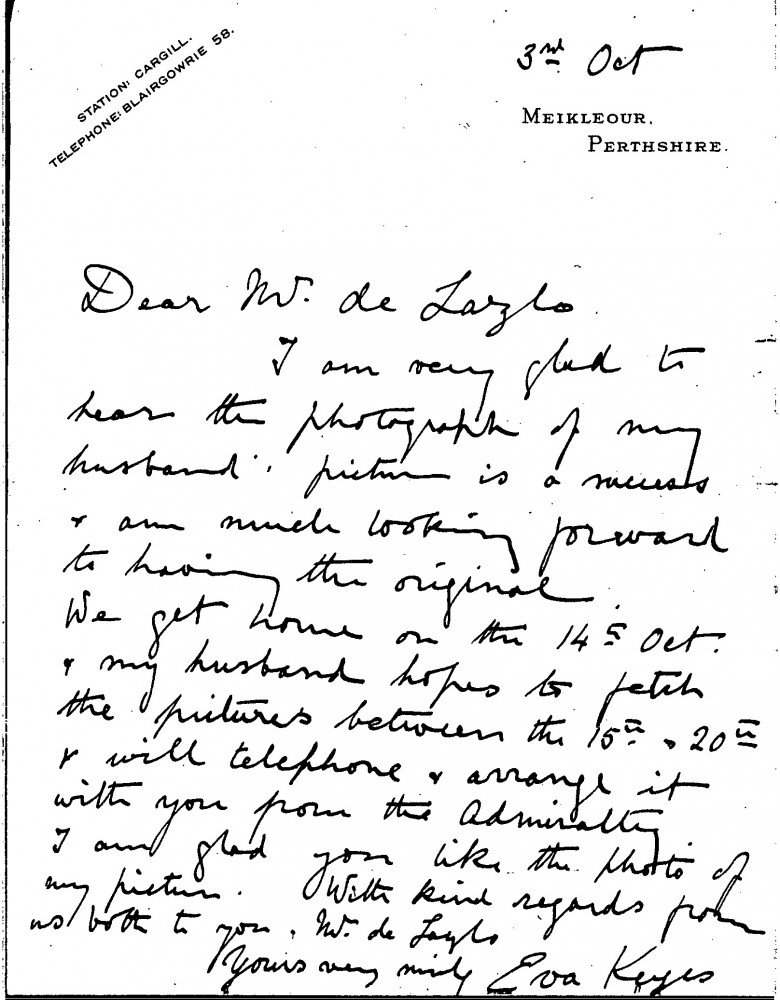 STATION: CARGILL.
TELEPHONE: BLAIRGOWRIE 58.
3rd Oct
MEIKLEOUR,
PERTHSHIRE.
Dear Mr. de Lazlo
I am very glad to
hear the photograph of my
husband's picture is a success
& am much looking forward
to having the original.
We get home on the 14th Oct.
& my husband hopes to fetch
the pictures between the 15th & 20th
& will telephone & arrange it
with you from the Admiralty
I am glad you like the photo of
my picture. With kind regards from
us both to you & Mr. de Lazlo
Yours very Eva Keyes